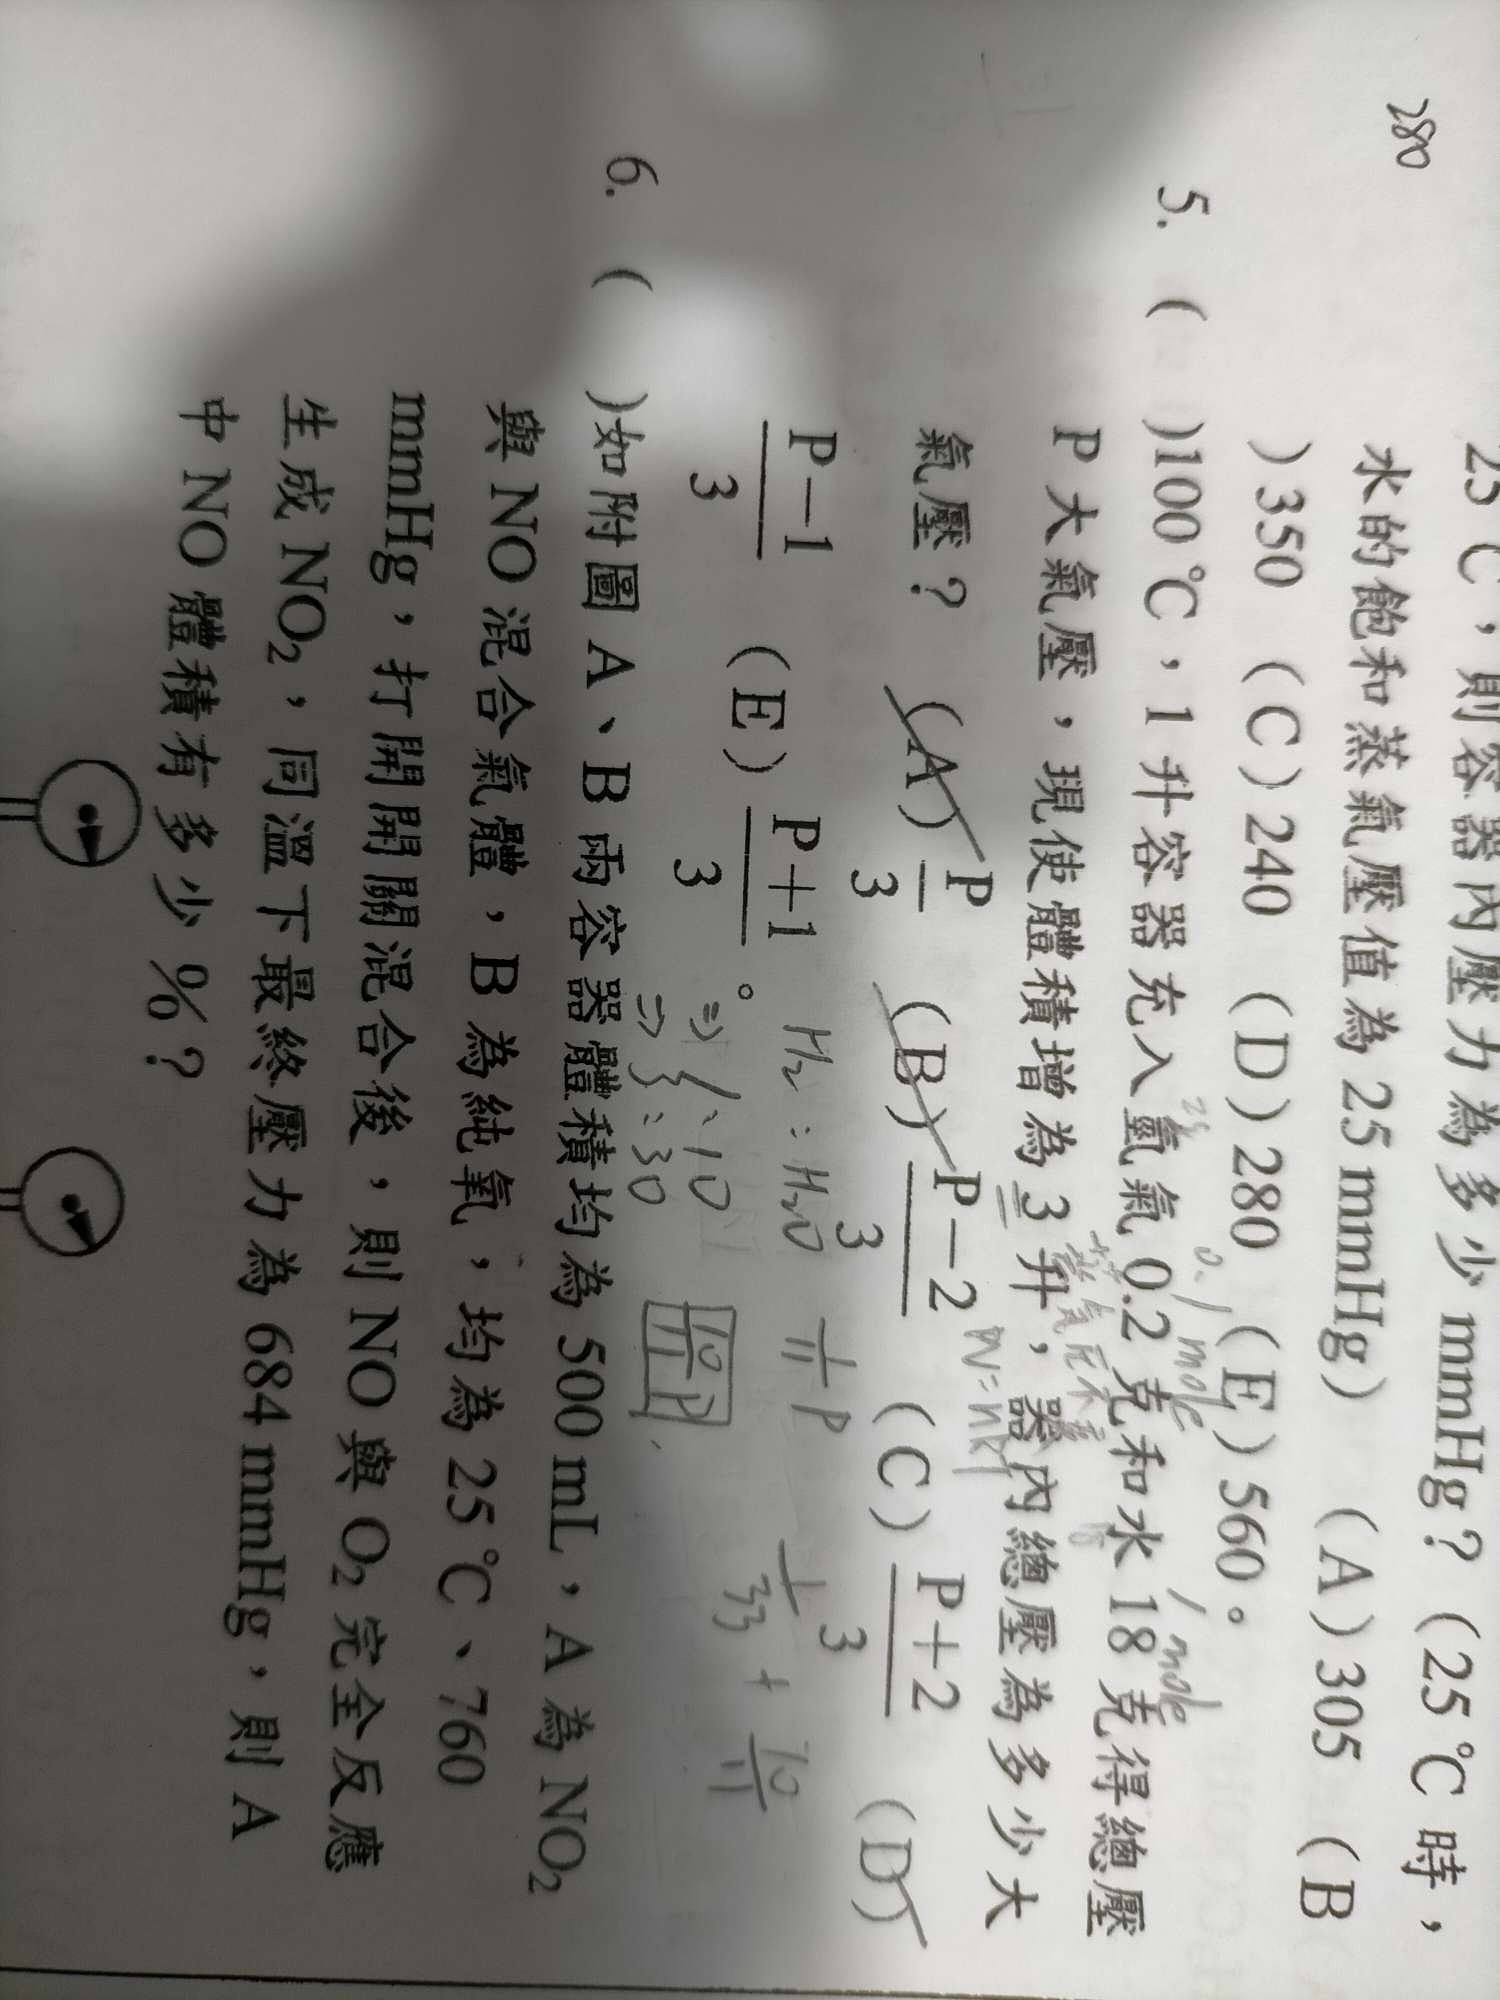 25℃,則容器內壓力為多少 mmHg?(25℃時,
水的飽和蒸氣壓值為 25 mmHg) (A)305 (B
)350 (C)240 (D)280 (E)560。
280
0.1 mole 1 mole
5. ( )100℃,1 升容器充入氫氣 0.2 克和水 18 克得總壓
P 大氣壓,現使體積增為 3 升,器內總壓為多少大
PV=nRT
氣壓? (A) P/3 (B) P-2/3 (C) P+2/3 (D)
P-1/3 (E) P+1/3。
H₂:H₂O 1/11 P
⇒ 1:10 1/33 + 10/11
⇒ 3:30 10/11 P
6. ( )如附圖 A、B 兩容器體積均為 500 mL,A 為 NO₂
與 NO 混合氣體,B 為純氧,均為 25℃、760
mmHg,打開開關混合後,則 NO 與 O₂ 完全反應
生成 NO₂,同溫下最終壓力為 684 mmHg,則 A
中 NO 體積有多少 %?